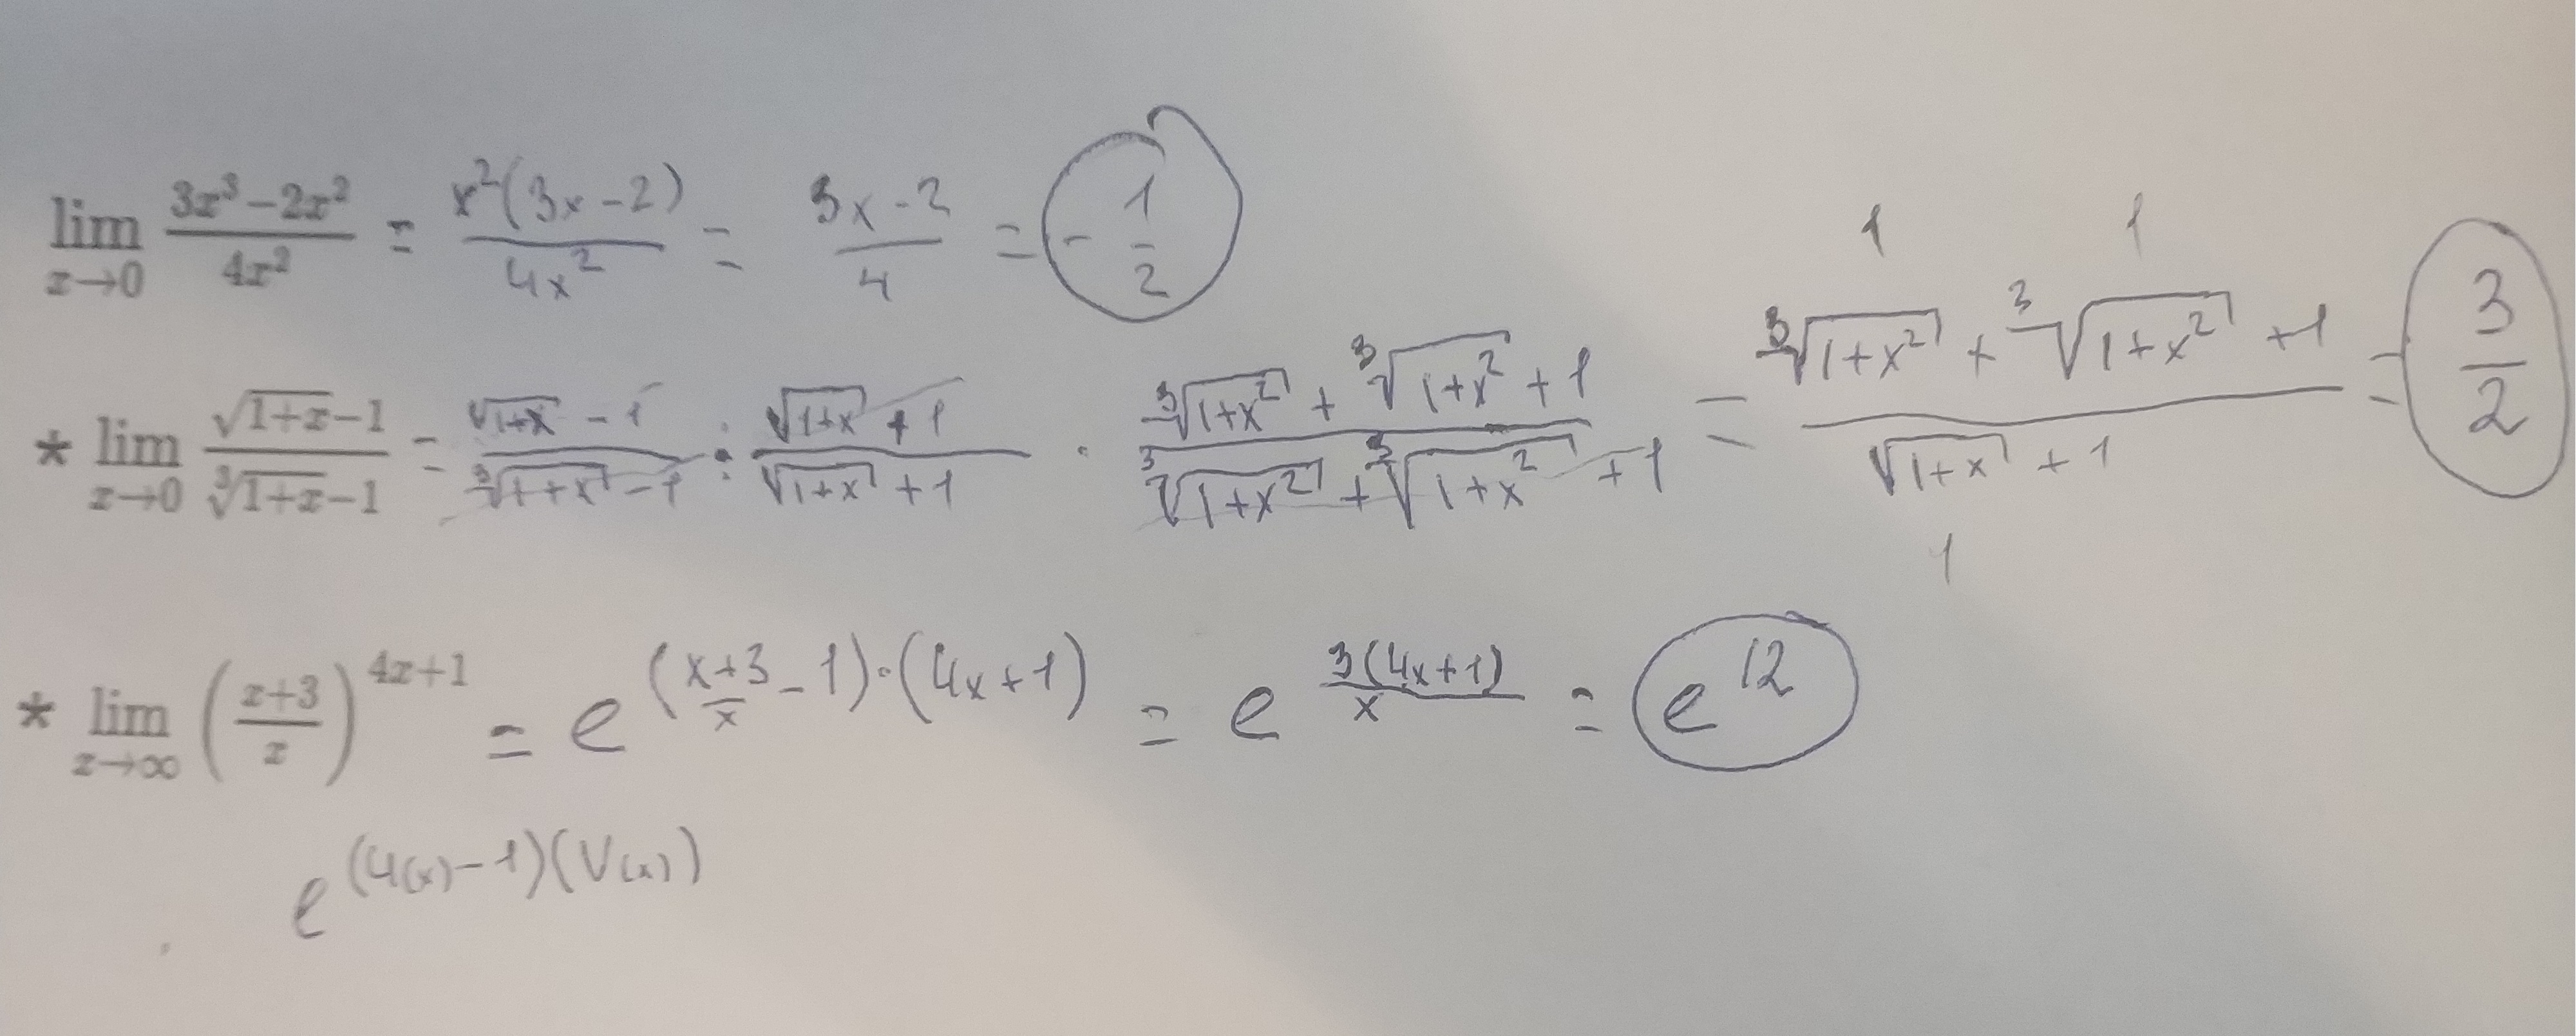 lim x→0 (3x³−2x²)/(4x²) = x²(3x−2)/(4x²) = (3x−2)/4 = −1/2
* lim x→0 (√(1+x)−1)/(∛(1+x)−1) = (√(1+x) − 1)/(∛(1+x) − 1) : (√(1+x) + 1)/(√(1+x) + 1) · (∛(1+x²) + ∛(1+x²) + 1)/(∛(1+x²) + ∛(1+x²) + 1) = (∛(1+x²) + ∛(1+x²) + 1)/(√(1+x) + 1) = 3/2
1 1
1
* lim x→∞ ((x+3)/x)^(4x+1) = e^(((x+3)/x − 1)·(4x+1)) = e^(3(4x+1)/x) = e^12
e^((U(x)−1)(V(x)))